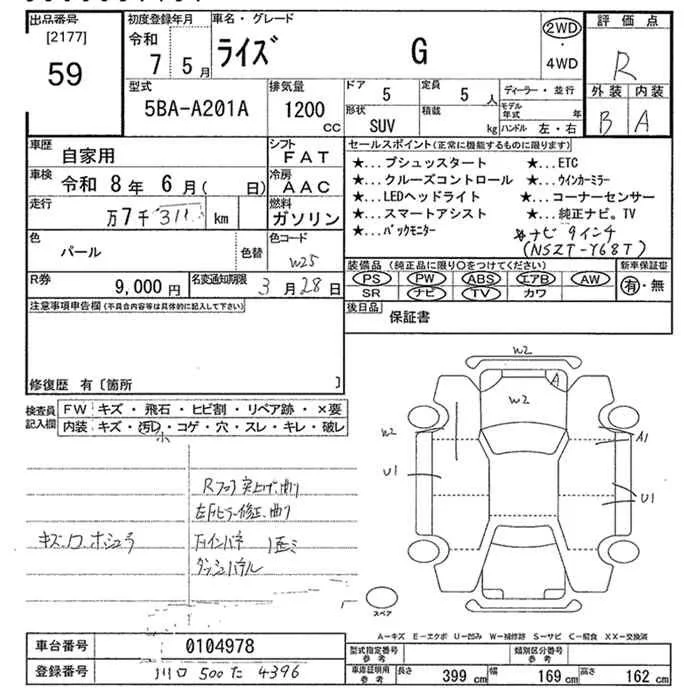 出品番号
[2177]
59
初度登録年月
令和
7 5月
車名・グレード
ライズ G
2WD
・
4WD
評価点
R
外装 内装
B A
型式
5BA-A201A
排気量
1200
CC
ドア
5
定員
5人
ディーラー・並行
形状
SUV
積載
kg
モデル年式 年
ハンドル 左・右
車歴
自家用
シフト
FAT
車検
令和 8年 6月( 日)
冷房
AAC
走行
万7千311 km
燃料
ガソリン
色
パール
色替
色コード
W25
R券
9,000円
名変通知期限
3月28日
セールスポイント(正常に機能するものに限ります)
★...プシュッスタート ★...ETC
★...クルーズコントロール ★...ウインカーミラー
★...LEDヘッドライト ★...コーナーセンサー
★...スマートアシスト ★...純正ナビ。TV
★...バックモニター ★ナビ 9インチ
(NSZT-Y68T)
装備品(純正品に限り○をつけてください)
PS PW ABS エアB AW
SR ナビ TV カワ
新車保証書
有・無
後日品
保証書
注意事項申告欄(不具合内容等は具体的に記入して下さい)
修復歴 有〔箇所 〕
検査員
記入欄
FW キズ・飛石・ヒビ割・リペア跡・×要
内装 キズ・汚レ・コゲ・穴・スレ・キレ・破レ
小
Rフロア突上げ、曲り
左Fピラー修正、曲り
ダッシュパネル
W2
A
W2
W2
A1
U1
U1
スペア
A-キズ E-エクボ U-凹み W-補修跡 S-サビ C-腐食 XX-交換済
車台番号
0104978
登録番号
川口 500 た 4396
型式指定番号
参考
類別区分番号
参考
車庫証明用
参考
長さ 399cm 幅 169cm 高さ 162cm